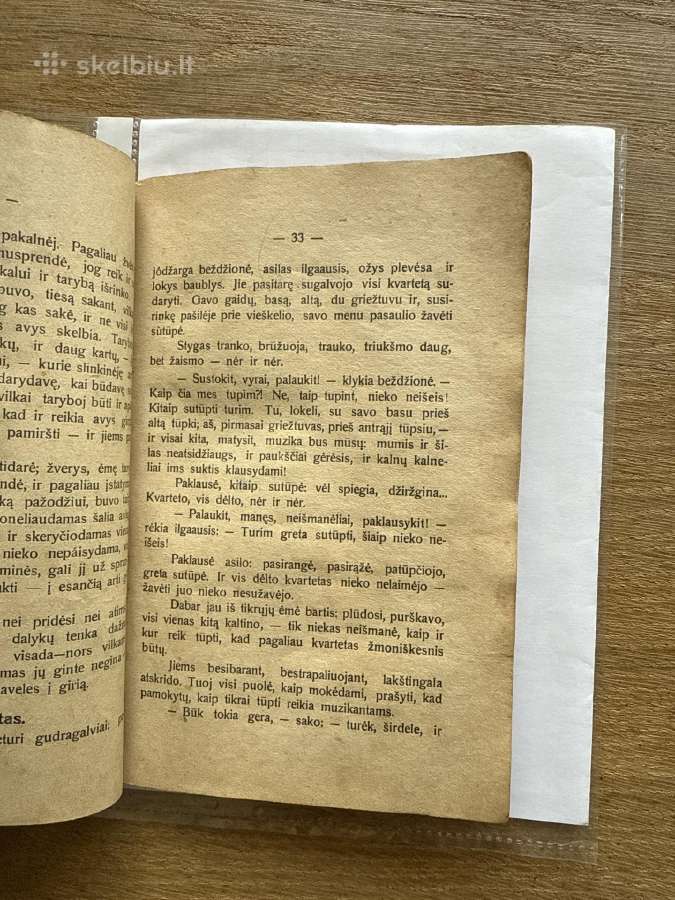 skelbiu.lt
pakalnėj. Pagaliau
nusprendė, jog reik
kalui ir tarybą išrinko.
buvo, tiesą sakant,
kas sakė, ir ne visi
avys skelbia.
ir daug kartų, —
— kurie slinkinėję
kai būdavę
vilkai taryboj būti ir
kad ir reikia avys
pamiršti — ir jiems
žverys, ėmę
ir pagaliau
pažodžiui, buvo
šalia
ir skeryčiodamas
nieko nepáisydama,
gali jį už
— į esančią arti
nei pridėsi nei
dalykų tenka
visada—nors
jų ginte negina
aveles į girią.
tas.
gudragalviai:
— 33 —
jódžarga beždžionė, asilas ilgaausis, ožys plevėsa ir
lokys baublys. Jie pasitarę sugalvojo visi kvartetą su-
daryti. Gavo gaidų, basą, altą, du griežtuvu ir, susi-
rinkę pašilėje prie vieškelio, savo menu pasaulio žavėti
sútūpė.
Stygas tranko, brūžuoja, trauko, triukšmo daug,
bet žaismo — nėr ir nėr.
— Sustokit, vyrai, palaukit! — klykia beždžionė. —
Kaip čia mes tupim?! Ne, taip tupint, nieko neišeis!
Kitaip sutūpti turim. Tu, lokeli, su savo basu prieš
altą tūpki; aš, pirmasai griežtuvas, prieš antrąjį tūpsiu, —
ir visai kita, matysit, muzika bus mūsų: mumis ir ši-
las neatsidžiaugs, ir paukščiai gėrėsis, ir kalnų kalne-
liai ims suktis klausydami!
Paklausė, kitaip sutūpė: vėl spiegia, džiržgina...
Kvarteto, vis dėlto, nėr ir nėr.
— Palaukit, manęs, neišmanėliai, paklausykit! —
rėkia ilgaausis: — Turim greta sutūpti, šiaip nieko ne-
išeis!
Paklausė asilo: pasirangė, pasirąžė, patúpčiojo,
greta sutūpė. Ir vis dėlto kvartetas nieko nelaimėjo —
žavėti juo nieko nesužavėjo.
Dabar jau iš tikrųjų ėmė bartis: plūdosi, purškavo,
visi vienas kitą kaltino, — tik niekas neišmanė, kaip ir
kur reik tūpti, kad pagaliau kvartetas žmoniškesnis
būtų.
Jiems besibarant, bestrapaliuojant, lakštingala
atskrido. Tuoj visi puolė, kaip mokėdami, prašyti, kad
pamokytų, kaip tikrai tūpti reikia muzikantams.
— Būk tokia gera, — sako; — turėk, širdele, ir